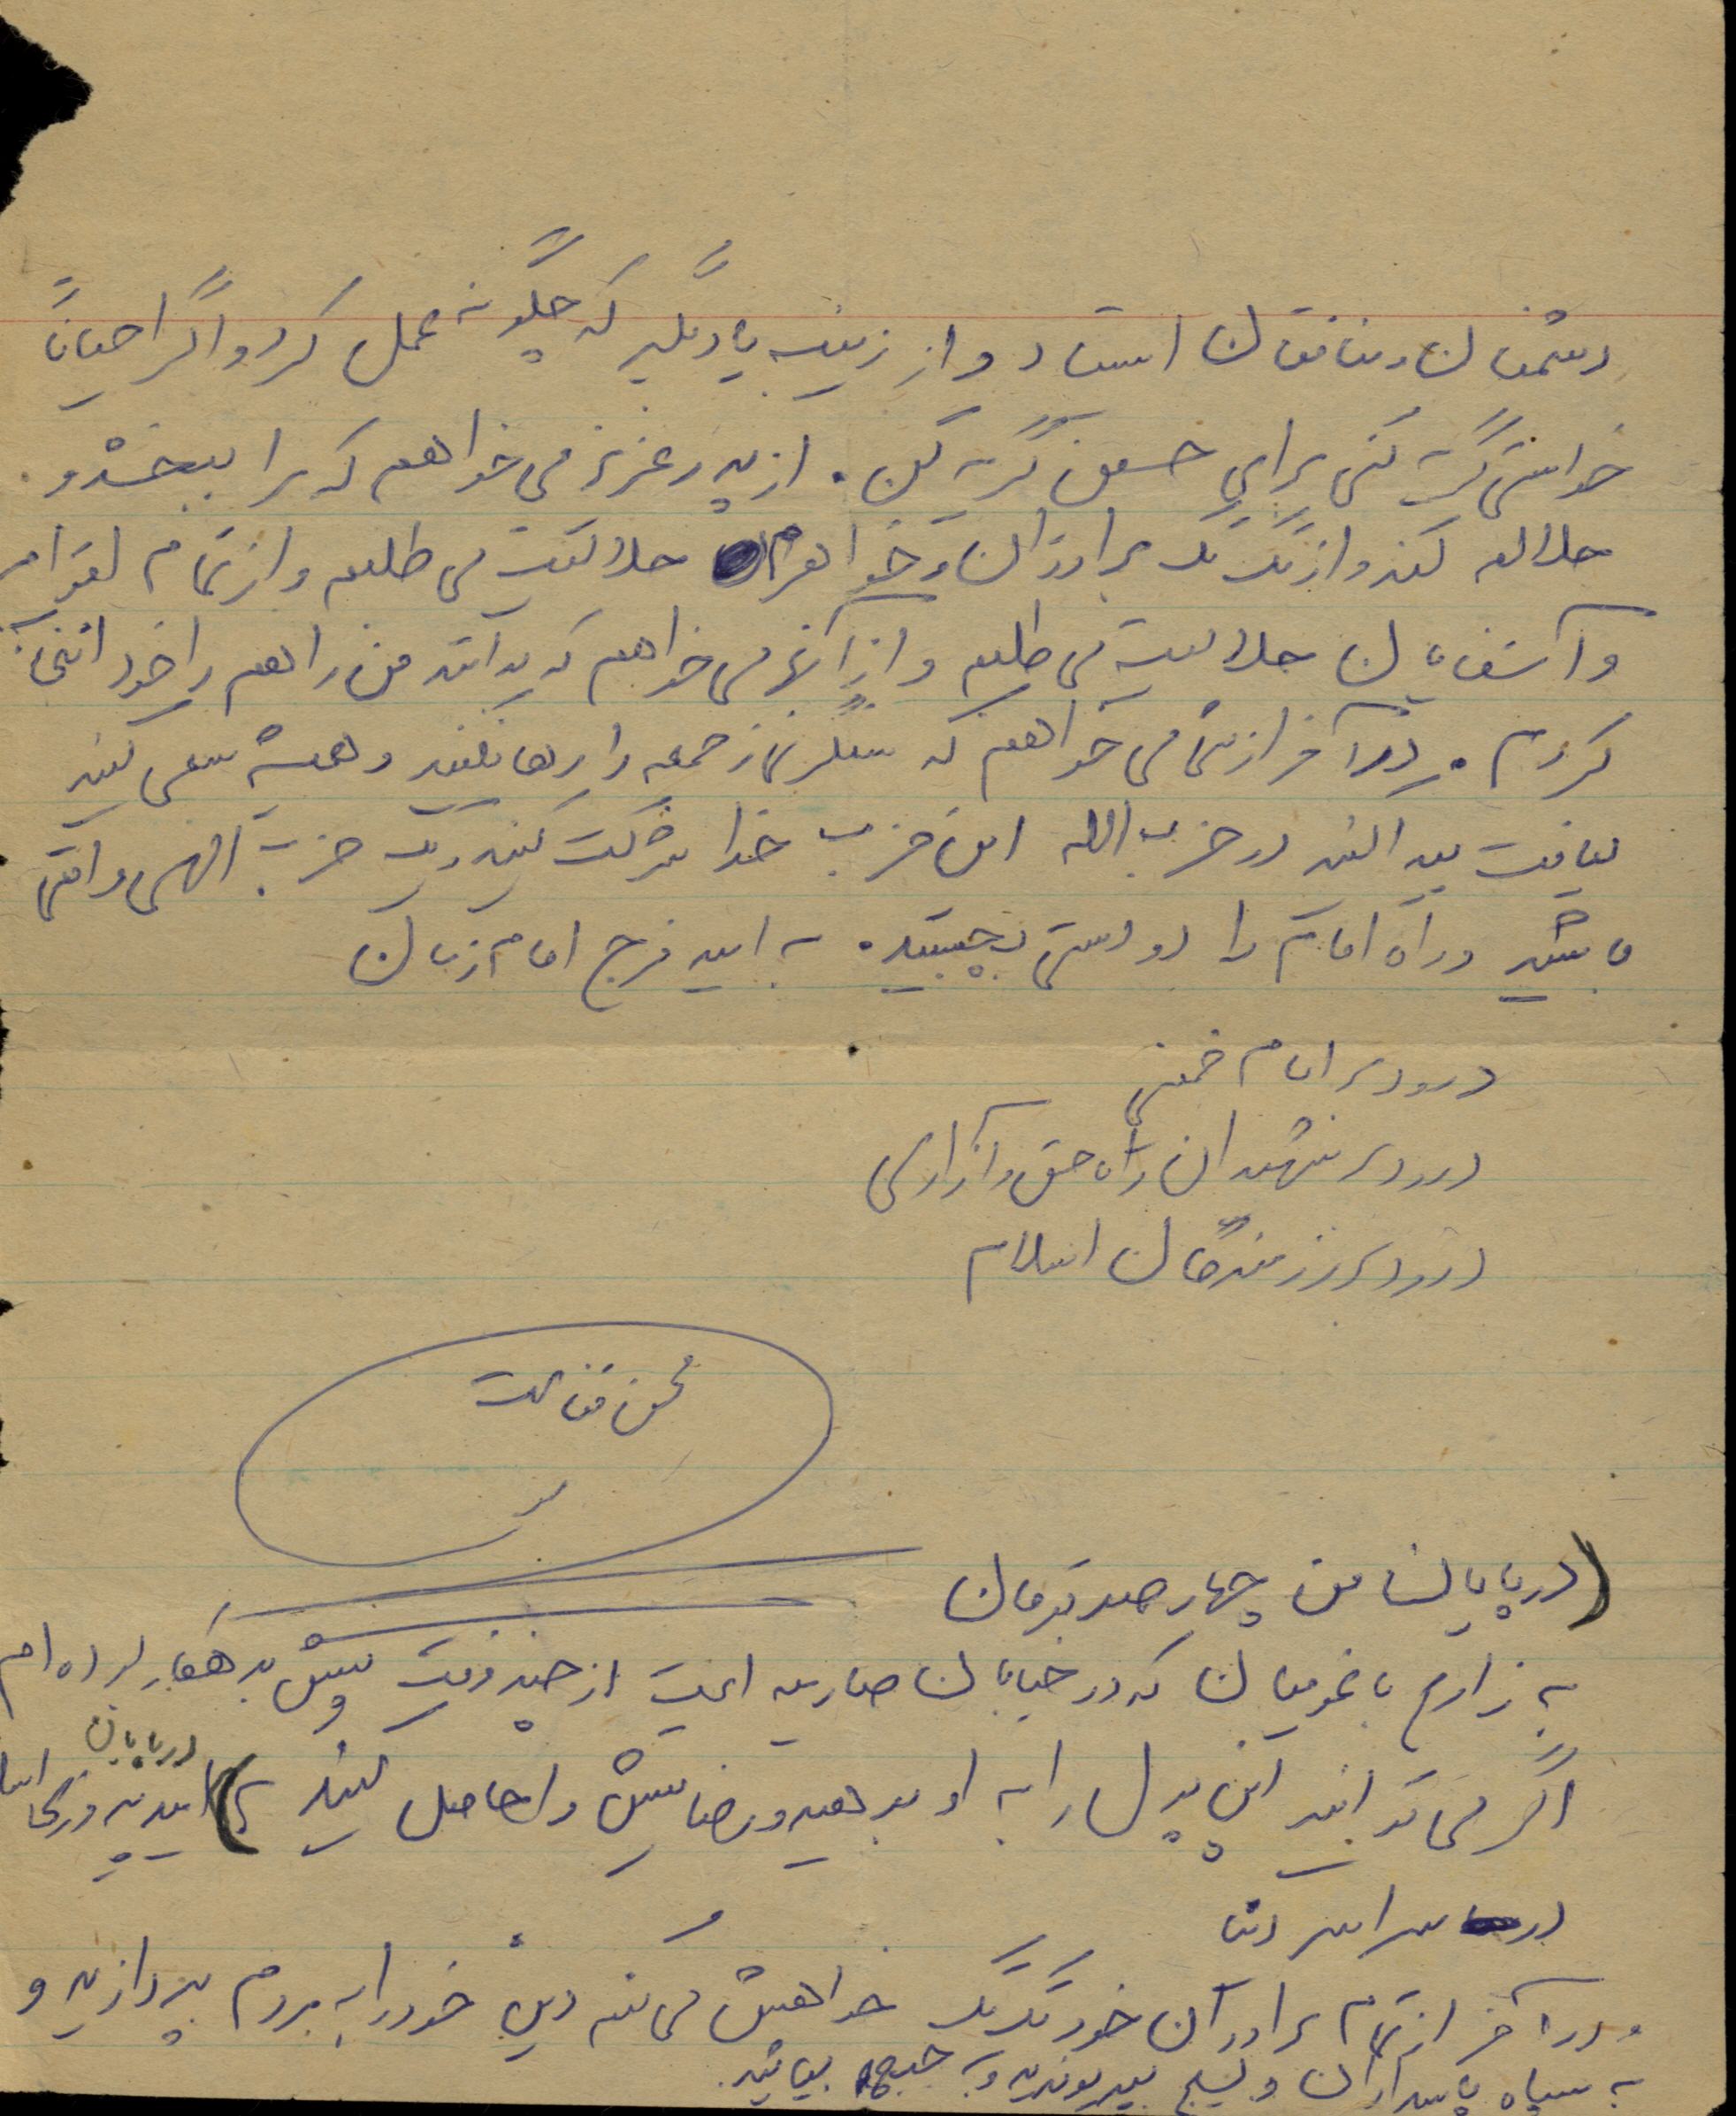 دشمنان و منافقان ایستاد و از زینب یاد بگیر که چگونه عمل کرد و اگر احیاناً
خواستی گریه کنی برای حسین گریه کن. از پدر عزیزم می خواهم که مرا ببخشد و
حلالم کند و از تک تک برادران و خواهرم حلالیت می طلبم و از تمام اقوام
و آشنایان حلالیت می طلبم و از آنها می خواهم که بدانند من راهم را خود انتخاب
کردم. در آخر از شما می خواهم که سنگر نماز جمعه را رها نکنید و همیشه سعی کنید
لیاقت پیدا کنید در حزب الله این حزب خدا شرکت کنید و یک حزب الهی واقعی
باشید و راه امام را دو دستی بچسبید. به امید فرج امام زمان
درود بر امام خمینی
درود بر شهیدان راه حق و آزادی
درود بر رزمندگان اسلام
محسن قناعت
(در پایان من چهار صد تومان
به زارع باغومیان که در خیابان صاریه است از چند وقت پیش بدهکار بوده ام
اگر می توانید این پول را به او بدهید و رضایتش را حاصل کنید) امید پیروزی
در پایان
در سراسر
و در آخر از تمام برادران خود تک تک خواهش می کنم دین خود را به مردم بپردازید و
به سپاه پاسداران و بسیج بپیوندید و به جبهه بیائید.